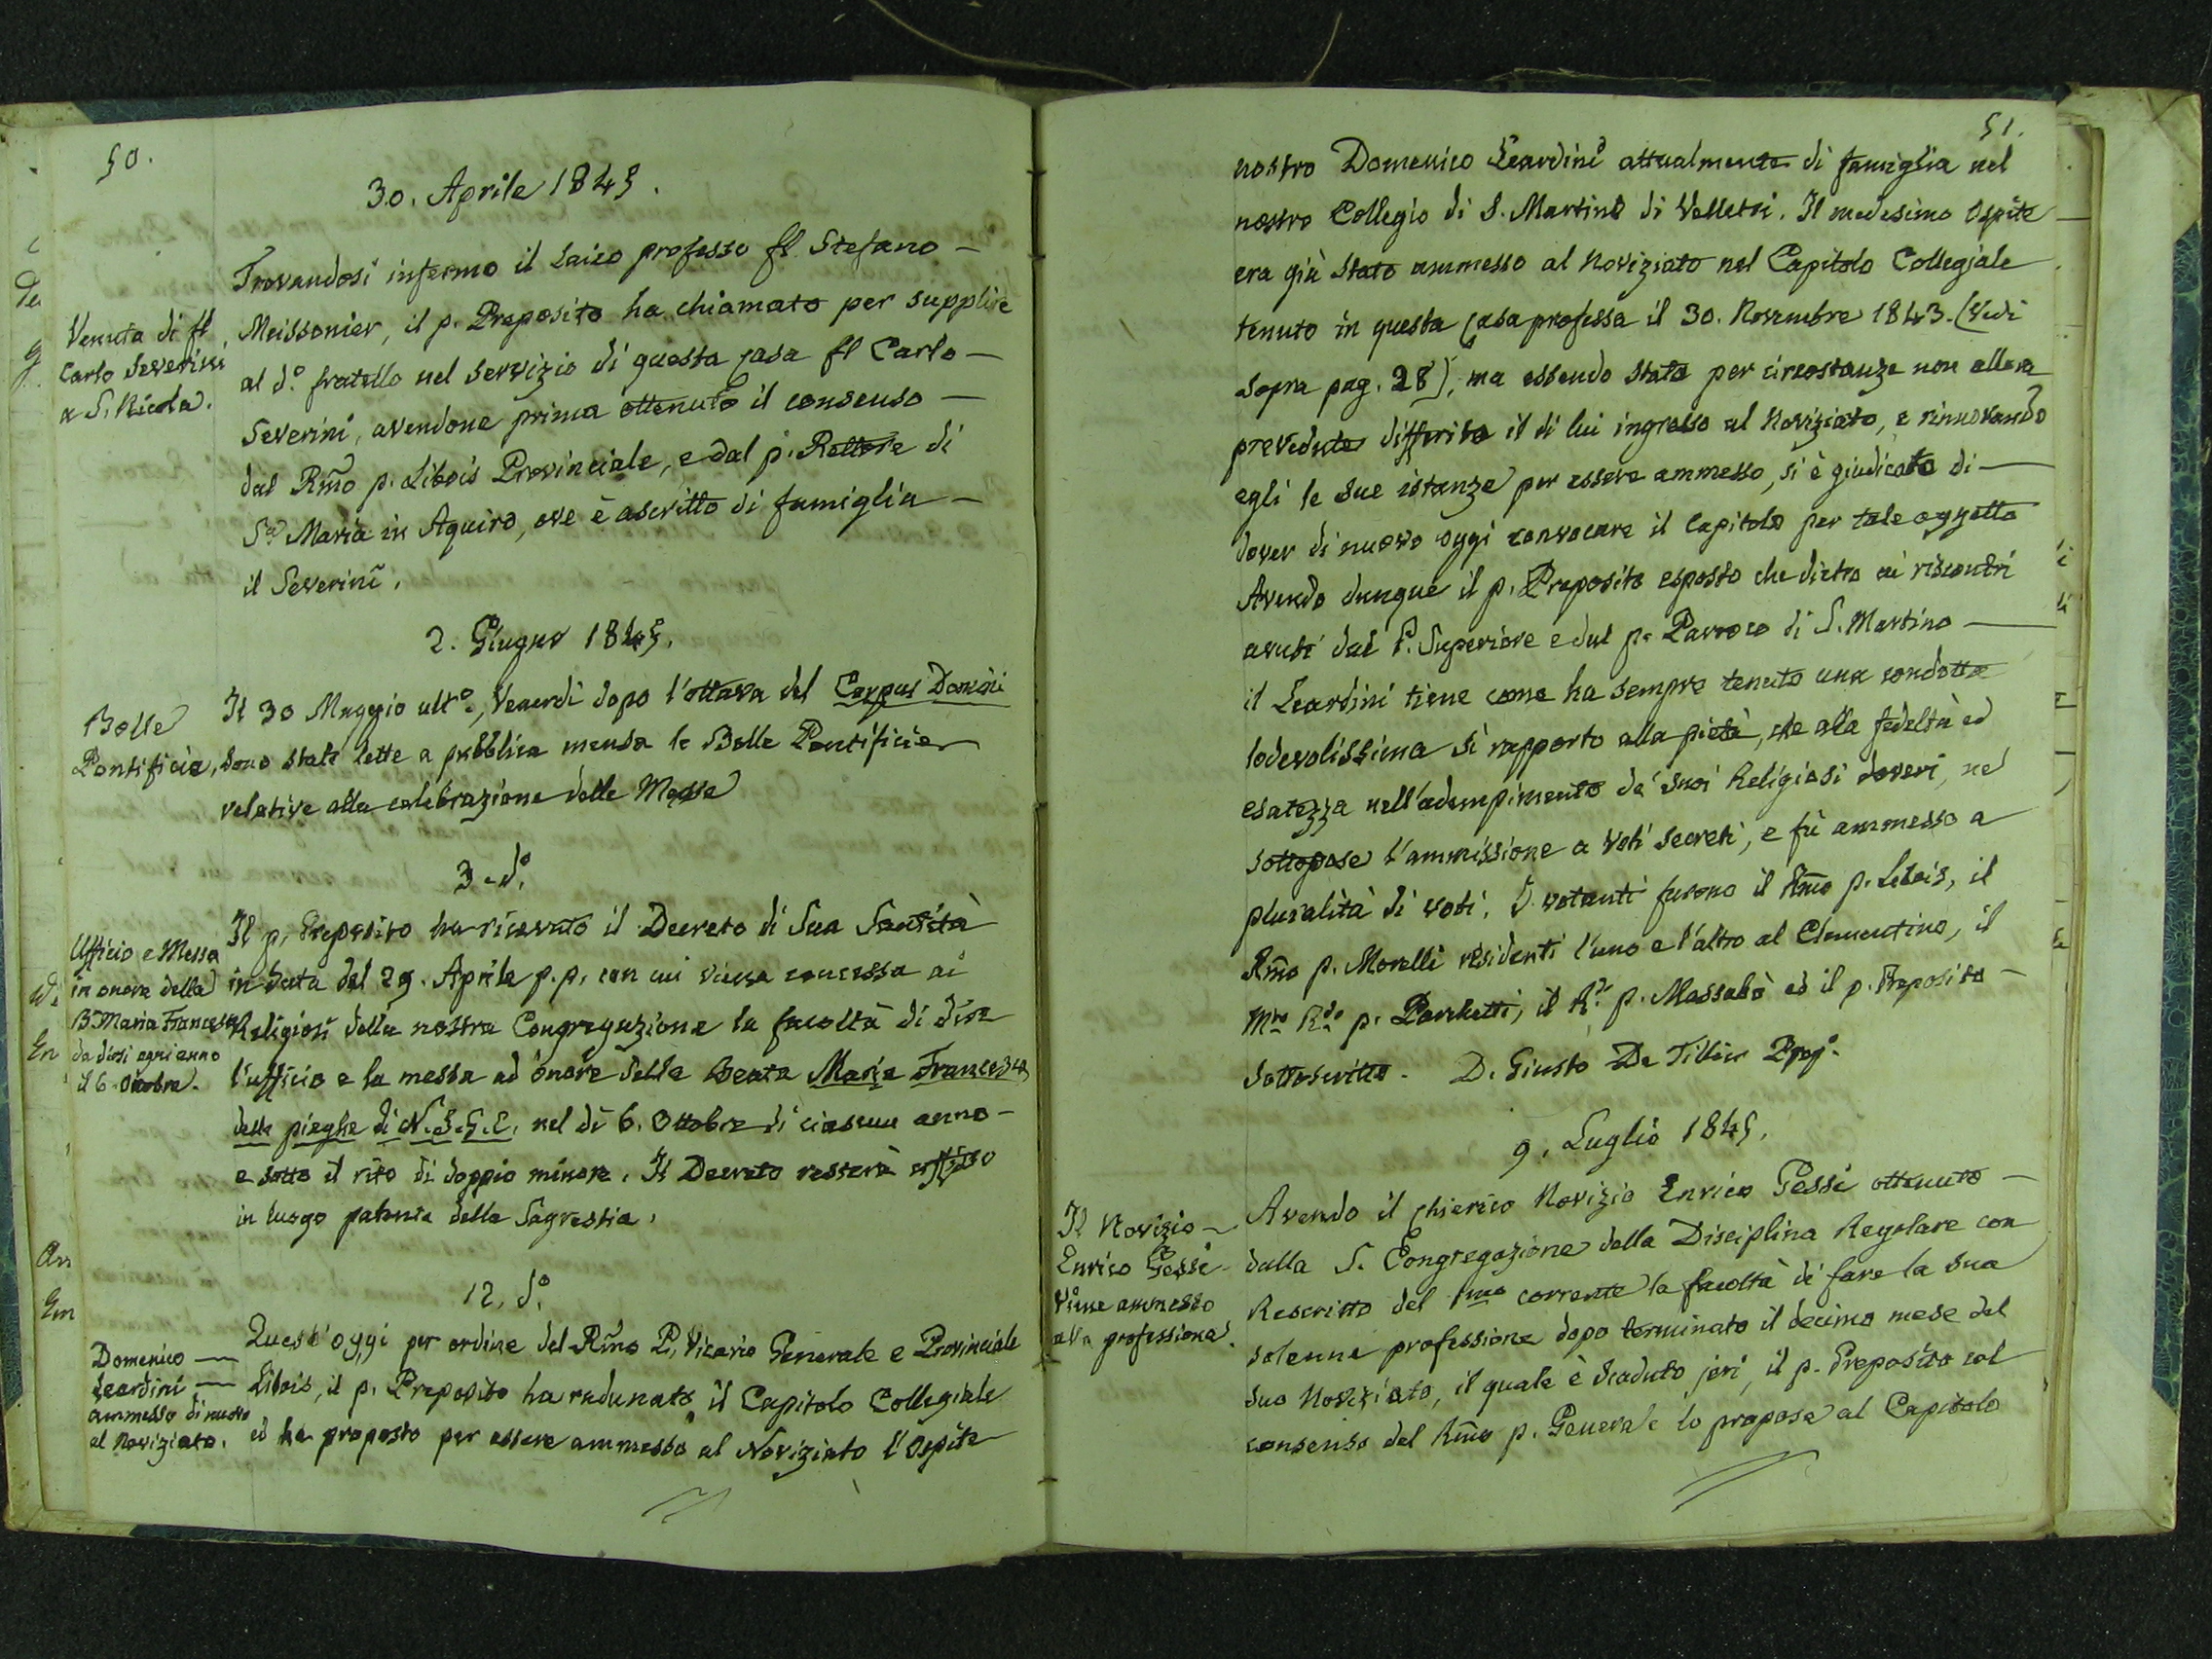 50.
30. Aprile 1845.
Trovandosi infermo il Laico professo fl. Stefano —
Venuta di fl.
Carlo Severini
a S. Nicola.
Meissonier, il p. Preposito ha chiamato per supplire
al d.o fratello nel servizio di questa casa fl Carlo —
Severini, avendone prima ottenuto il consenso —
dal Rmo p. Libois Provinciale, e dal p. Rettore di
S.a Maria in Aquiro, ove è ascritto di famiglia —
il Severini.
2. Giugno 1845.
Bolle
Pontificie,
Il 30 Maggio ult.o, Venerdì dopo l'ottava del Corpus Domini
sono state lette a pubblica mensa le Bolle Pontificie
relative alla celebrazione delle Messe
3. d.o
Ufficio e Messa
in onore della
B. Maria Francesca
da dirsi ogni anno
il 6. Ottobre.
Il p. Preposito ha ricevuto il Decreto di Sua Santità
in data del 29. Aprile p.p. con cui viene concessa ai
Religiosi della nostra Congregazione la facoltà di dire
l'ufficio e la messa ad onore della beata Maria Francesca
delle pieghe di N.S.G.C. nel dì 6. Ottobre di ciascun anno —
e sotto il rito di doppio minore. Il Decreto resterà affisso
in luogo patente della Sagrestia.
12. d.o
Domenico —
Leardini —
ammesso di nuovo
al Noviziato.
Quest'oggi per ordine del Rmo P. Vicario Generale e Provinciale
Libois, il p. Preposito ha radunato il Capitolo Collegiale
ed ha proposto per essere ammesso al Noviziato l'Ospite
51.
nostro Domenico Leardini attualmente di famiglia nel
nostro Collegio di S. Martino di Velletri. Il medesimo Ospite —
era già stato ammesso al Noviziato nel Capitolo Collegiale
tenuto in questa Casa professa il 30. Novembre 1843. (Vedi
sopra pag. 28), ma essendo stato per circostanze non allora
prevedute differito il di lui ingresso al Noviziato, e rinnovando
egli le sue istanze per essere ammesso, si è giudicato di —
dover di nuovo oggi convocare il Capitolo per tale oggetto
Avendo dunque il p. Preposito esposto che dietro ai riscontri
avuti dal P. Superiore e dal p. Parroco di S. Martino —
il Leardini tiene come ha sempre tenuto una condotta
lodevolissima sì rapporto alla pietà, che alla fedeltà ed
esatezza nell'adempimento de' suoi Religiosi doveri, ne
sottopose l'ammissione a voti secreti, e fù ammesso a
pluralità di voti. I votanti furono il Rmo p. Libois, il
Rmo p. Morelli residenti l'uno e l'altro al Clementino, il
M.to R.do p. Parchetti, il R.do p. Massabò ed il p. Preposito —
sottoscritto. D. Giusto De Tillier Prep.o
9. Luglio 1845.
Il Novizio —
Enrico Gessi
viene ammesso
alla professione.
Avendo il chierico Novizio Enrico Gessi ottenuto —
dalla S. Congregazione della Disciplina Regolare con
Rescritto del 1mo corrente la facoltà di fare la sua
solenne professione dopo terminato il decimo mese del
suo Noviziato, il quale è scaduto jeri, il p. Preposito col
consenso del Rmo p. Generale lo propose al Capitolo